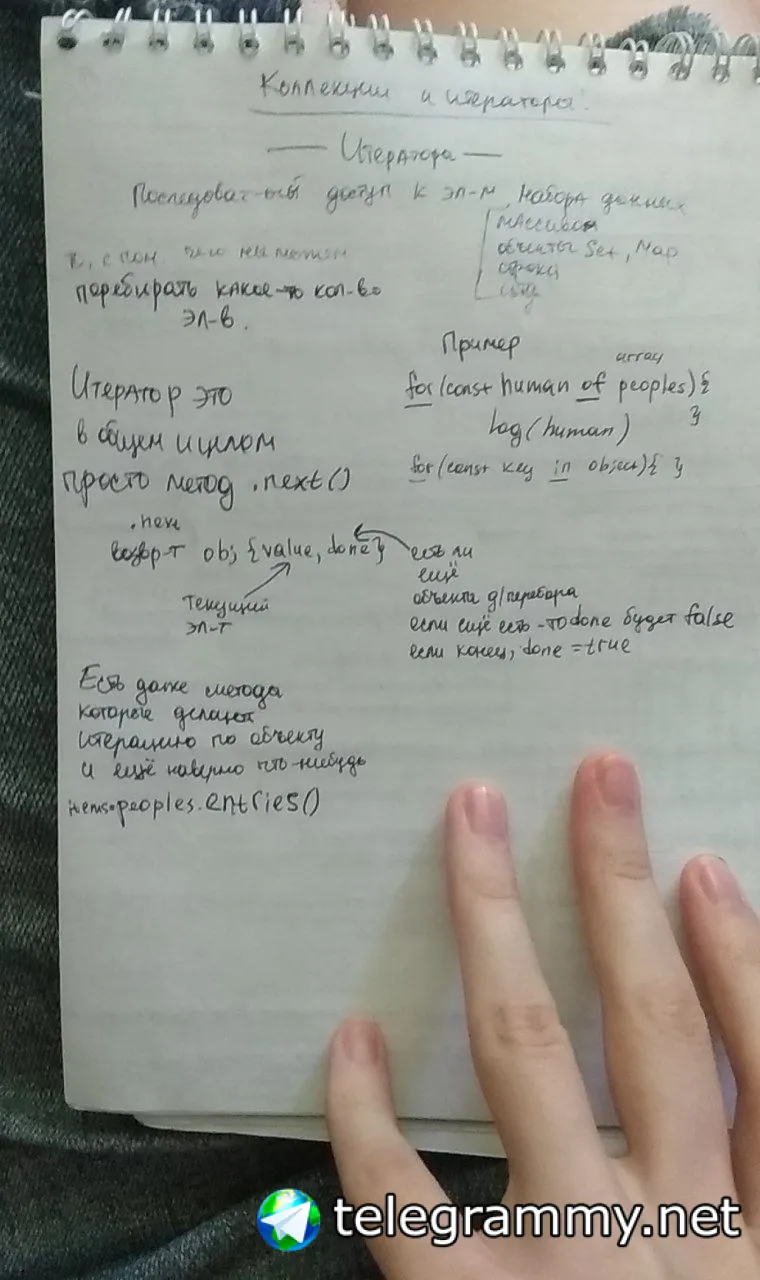 Коллекции и итераторы.
— Итератора —
Последоват-ный доступ к эл-м набора данных
массивом
объекты Set, Map
строки
с пом. чего мы можем
перебирать какое-то кол-во
эл-в.
Пример
array
for (const human of peoples) {
log(human) }
for (const key in object) { }
Итератор это
в общем и целом
просто метод .next()
.next
возвр-т obj {value, done}
текущий
эл-т
есть ли
ещё
объекты д/перебора
если ещё есть - то done будет false
если конец, done = true
Есть даже методы
которые делают
итерацию по объекту
и ещё наверно что-нибудь
items=peoples.entries()
telegrammy.net